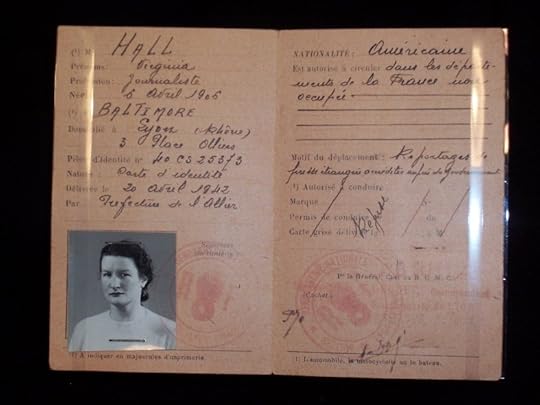 (¹) M HALL
Prénoms: Virginia
Profession: Journaliste
Né 6 Avril 1906
(¹) BALTIMORE
Domicilié à Lyon (Rhône)
3 Place Ollier
Pièce d'identité nº 40 CS 25373
Nature: Carte d'identité
Délivrée le 20 avril 1942
Par Préfecture de l'Allier
1) A indiquer en majuscules d'imprimerie.
NATIONALITÉ: Américaine
Est autorisé à circuler dans les départe-
ments de la France non
occupée
Motif du déplacement: Reportages de
presse étrangère accréditée auprès du Gouvernement
¹) Autorisé à conduire
Marque
Permis de conduire du
Carte grise délivrée le
Pr le Général
(Cachet)
1) L'automobile, la motocyclette ou le bateau.